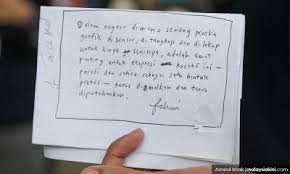 Dalam negara di mana seorang pereka
grafik di sensor, di tangkap dan di lokap
untuk karya seninya, adalah amat
penting untuk ekspresi kreatif ini -
parodi dan satira sebagai satu bentuk
protes - terus diamalkan dan terus
dipertahankan.
fahmi
Azneal Ishak | malaysiakini.com